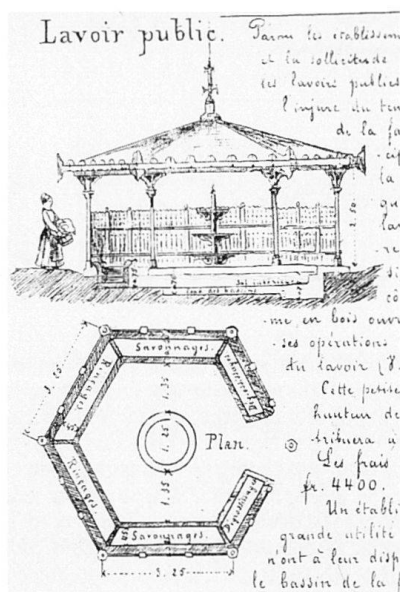 Lavoir public.
Parmi les établissem
et la sollicitude
les lavoirs publics
l'injure du tem
de la fa
cip
la
qu
lav
re
si
cô
me, en bois ouvr
ses opérations
du lavoir
Cette petite
hauteur de
tribuera à
Les frais
fr. 4400.
Un établi
grande utilité
n'ont à leur disp
le bassin de la f
2.50
Savonnages.
Rinçages
Rinçages
Savonnages.
Dégrossissages
Plan.
3.25
1.35
1.25
1.35
3.25